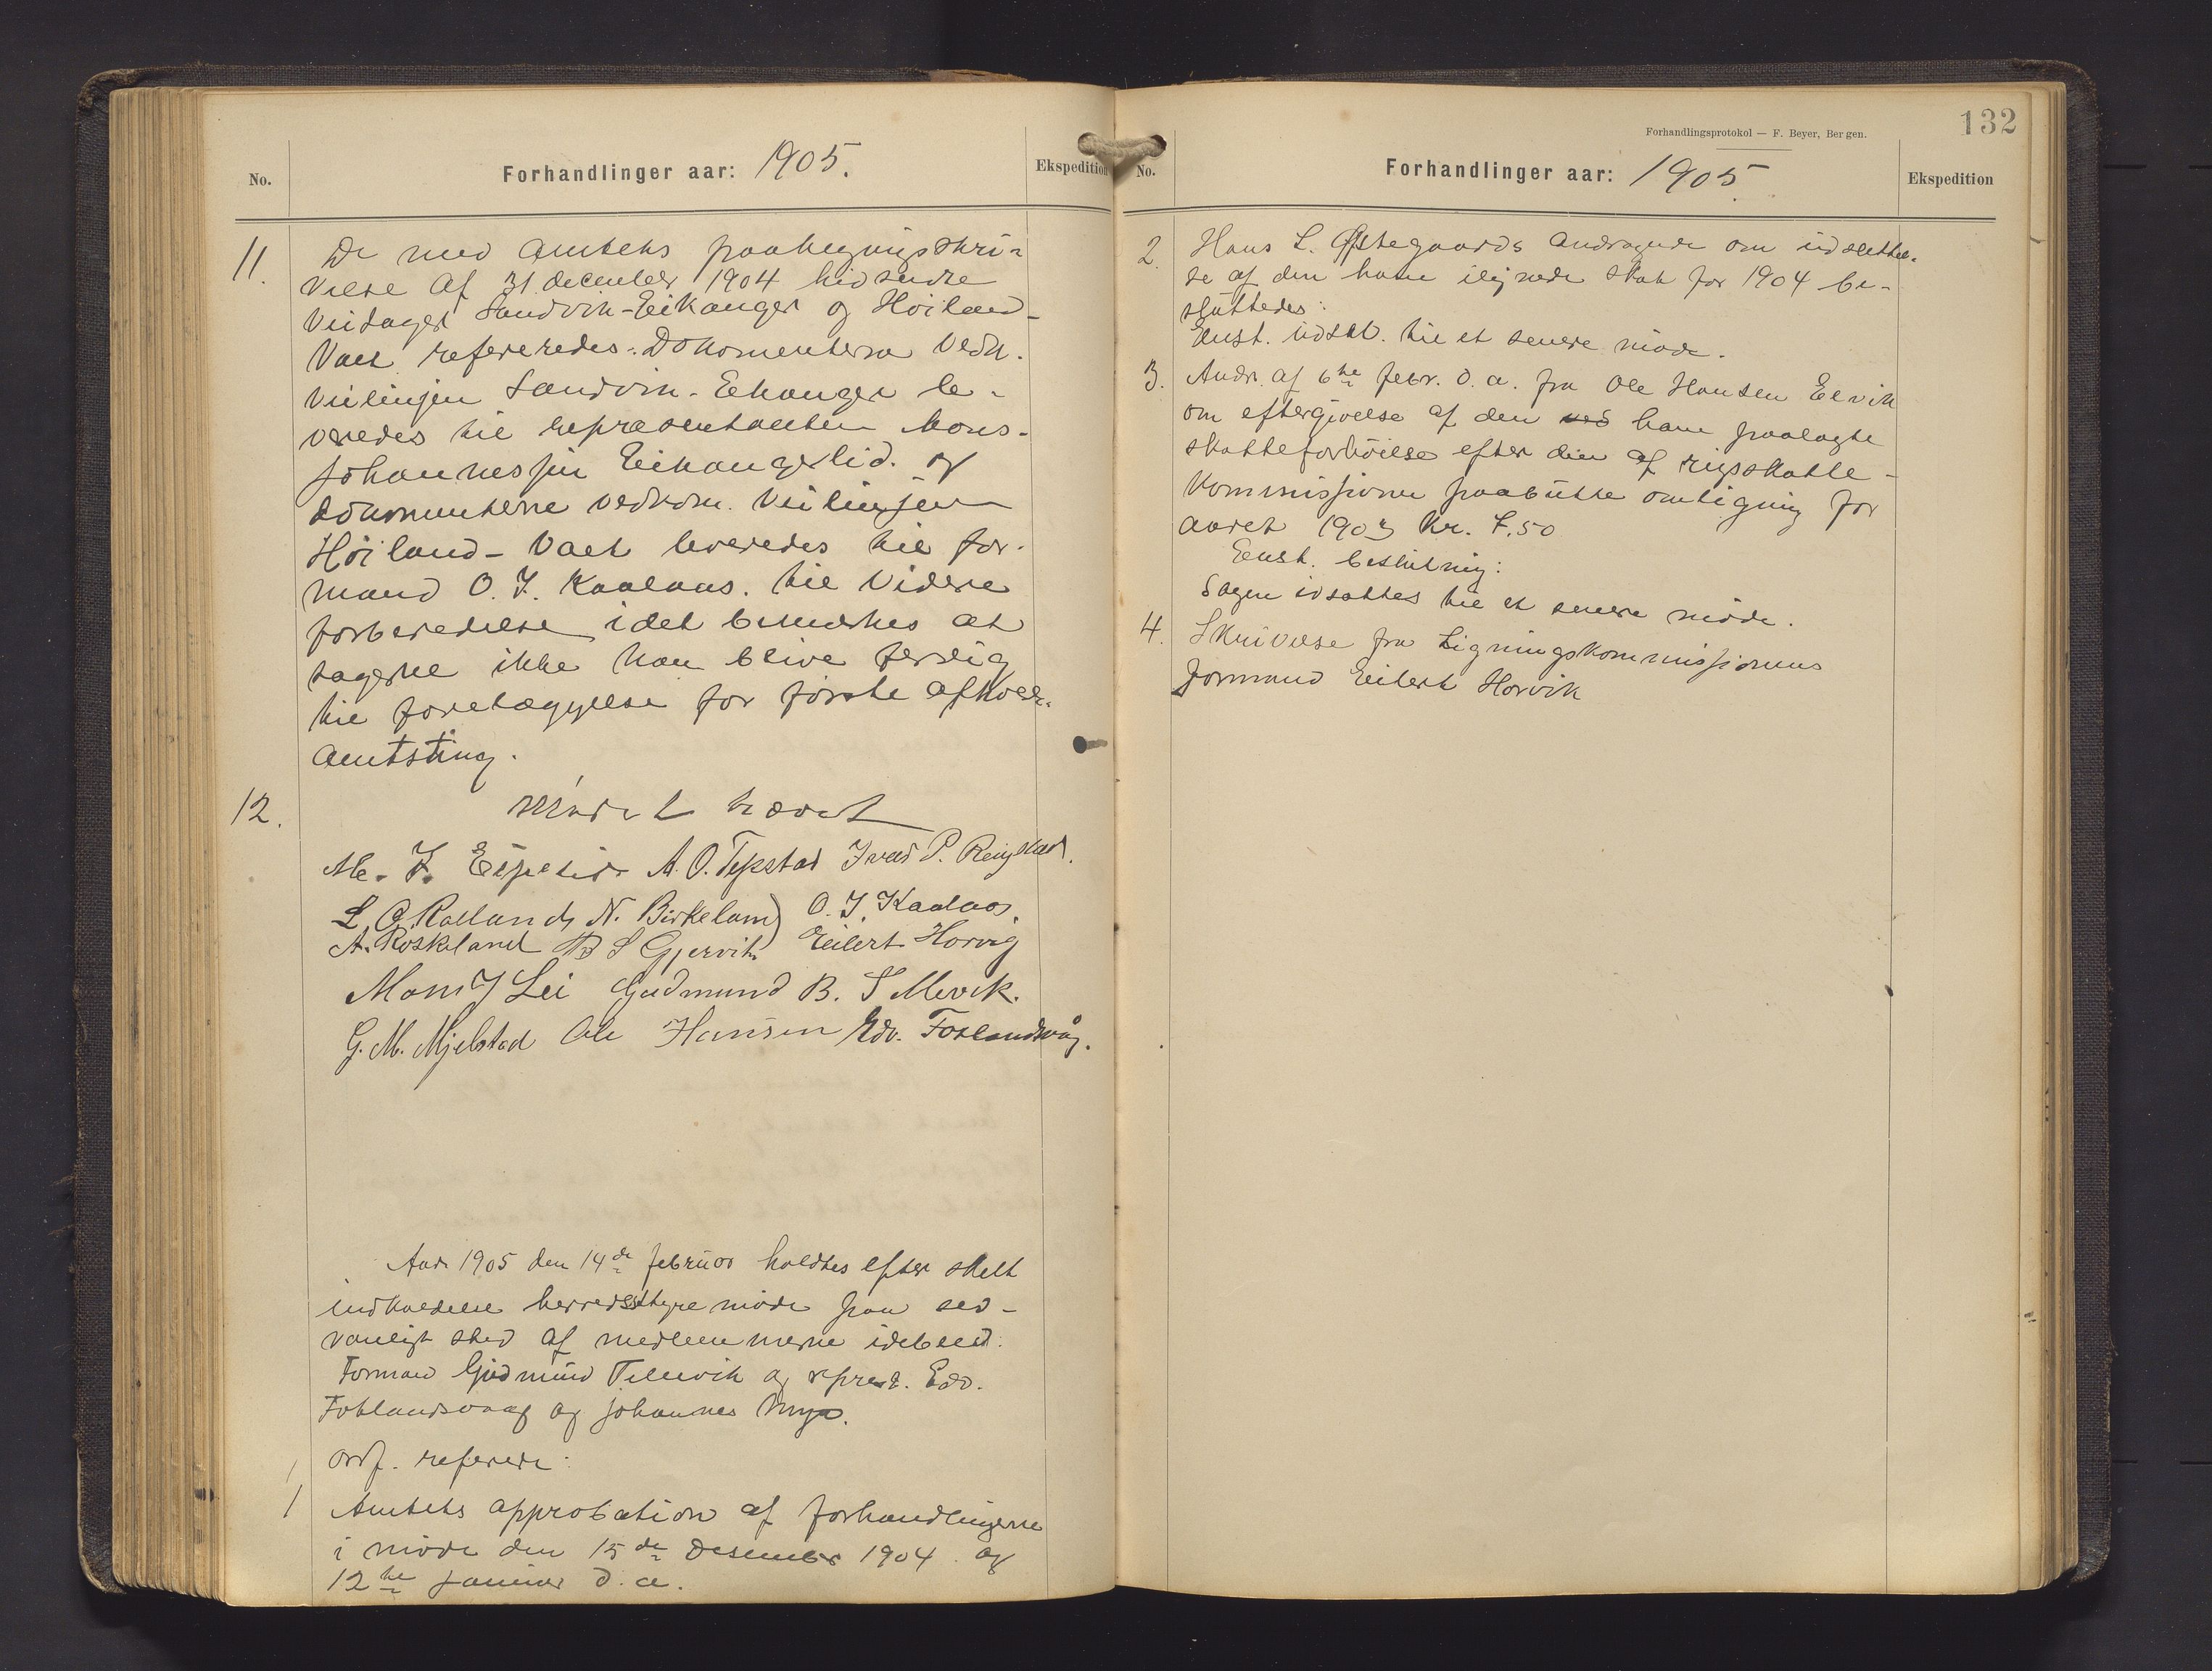 No.
Forhandlinger aar: 1905.
Ekspedition
11.
De med Amtets paategningsskri-
velse af 31 december 1904 hidsendte
veisager Sandvik-Eikanger og Höiland-
Vaet refereredes. Dokumenterne vedk.
veilinjen Sandvik-Eikanger le-
veredes til repræsentanten Mons-
Johannessen Eikangerlid. og
dokumenterne vedkom. veilinjen
Höiland-Vaet leveredes til for-
mand O. J. Kaalaas. til videre
forberedelse idet bemerkes at
sagerne ikke kan blive færdig
til forelæggelse for förste afhold.
amtsting.
12.
Mödet hævet
M. J. Espelid A. O. Tepstad Ivar P. Reigstad.
L. O. Rolland N. Birkeland O. J. Kaalaas.
A. Röskeland B S Gjervik Eilert Horvig
Mons J Lei Gudmund B. T Mevik.
G. M. Mjelstad Ole Hansen Edv. Foslandsvåg.
Aar 1905 den 14de februar holdtes efter skeet
indkaldelse herredsstyremöde paa sed-
vanligt sted af medlemmerne
Formand Gudmund og repræs. Edv.
Foslandsvaag og Johannes Mya.
ordf. refererte:
1
Amtets approbation af forhandlingerne
i möde den 15de Desember 1904 og
12te januar d. a.
Forhandlingsprotokol — F. Beyer, Bergen.
132
No.
Forhandlinger aar: 1905
Ekspedition
2.
Hans L. Östegaards andragende om udslettel-
se af den ham ilignede skat for 1904 be-
sluttedes:
Enst. udsat. til et senere möde.
3.
Andr. af 6te febr. d. a. fra Ole Hansen Elvik
om eftergivelse af den ved ham paalagte
skatteforhöielse efter den af rigsskatte-
kommissionen paabudte omligning for
aaret 1903 Kr. 7.50
Enst. beslutning:
Sagen udsattes til et senere möde.
4.
Skrivelse fra Ligningskommissionens
formand Eilert Horvik